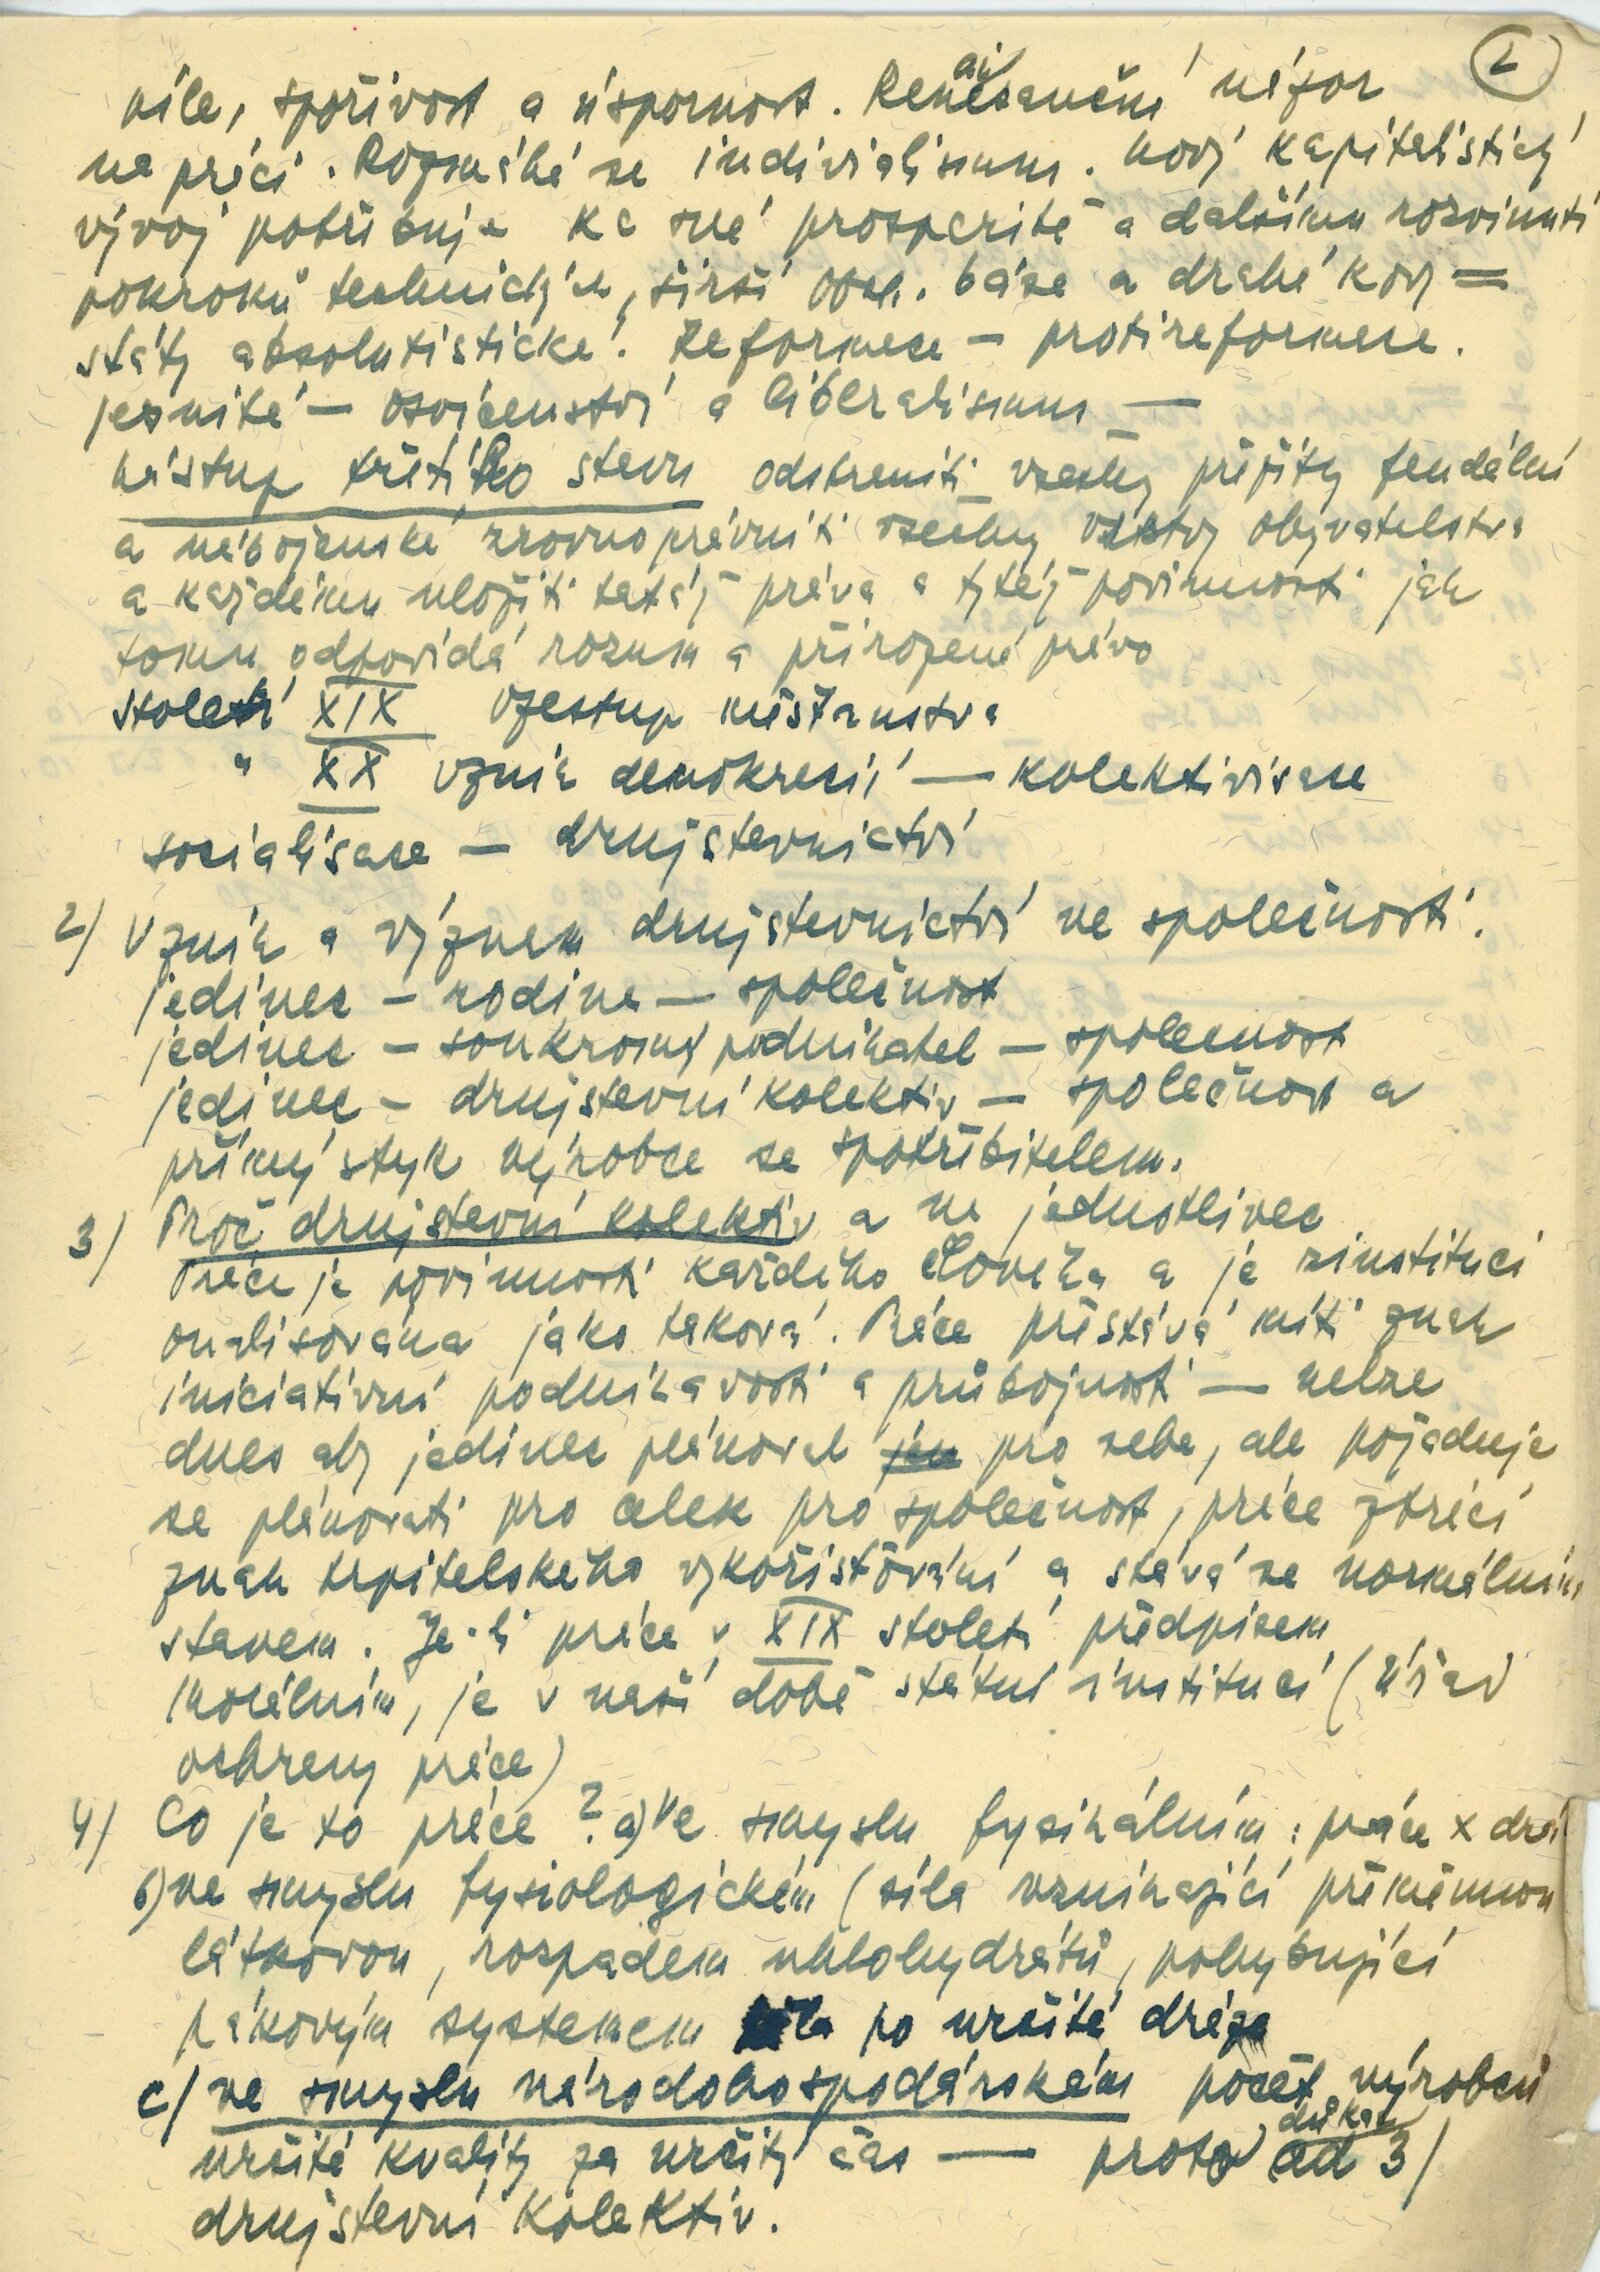 2
píle, spořivost a úspornost. Renesanční názor
na práci. Rozmáhá se individialismus. Nový kapitalistický
vývoj potřebuje ke své prosperitě a dalšímu rozvinutí
pokroků technických, širší obch. báse a drahé kovy =
státy absolutistické. Reformace – protireformace.
jesuité – osvícenství a liberalismus —
nástup třetího stavu odstraniti všechny přežitky feudální
a náboženské zrovnoprávniti všechny vrstvy obyvatelstva
a každému uložiti tatáž práva a tytéž povinnosti jak
tomu odpovídá rozum a přirozené právo
Století XIX vzestup měšťanstva
" XX vznik demokracií — kolektivisace
socialisace – družstevnictví
2) Vznik a význam družstevnictví ve společnosti.
jedinec – rodina – společnost
jedinec – soukromý podnikatel – společnost
jedinec – družstevní kolektiv – společnost a
přímý styk výrobce se spotřebitelem.
3) Proč družstevní kolektiv a ne jednotlivec
Práce je povinností každého člověka a je zinstituci
onalisována jako taková. Práce přestává míti znak
iniciativní podnikavosti a průbojnosti — nelze
dnes aby jedinec plánoval jen pro sebe, ale požaduje
se plánovati pro celek pro společnost, práce ztrácí
znak trpitelského vykořisťování a stává se normálním
stavem. Je-li práce v XIX století předpisem
morálním, je v naší době státní institucí (úřad
ochrany práce)
4) Co je to práce? a) ve smyslu fysikálním: práce x drá
b) ve smyslu fysiologickém (síla vznikající přeměnou
látkovou, rozpadem uhlohydrátů, pohybující
pákovým systemem po určité dráze
c) ve smyslu národohospodářském počet výrobků
určité kvality za určitý čas — proto důkaz ad 3)
družstevní kolektiv.